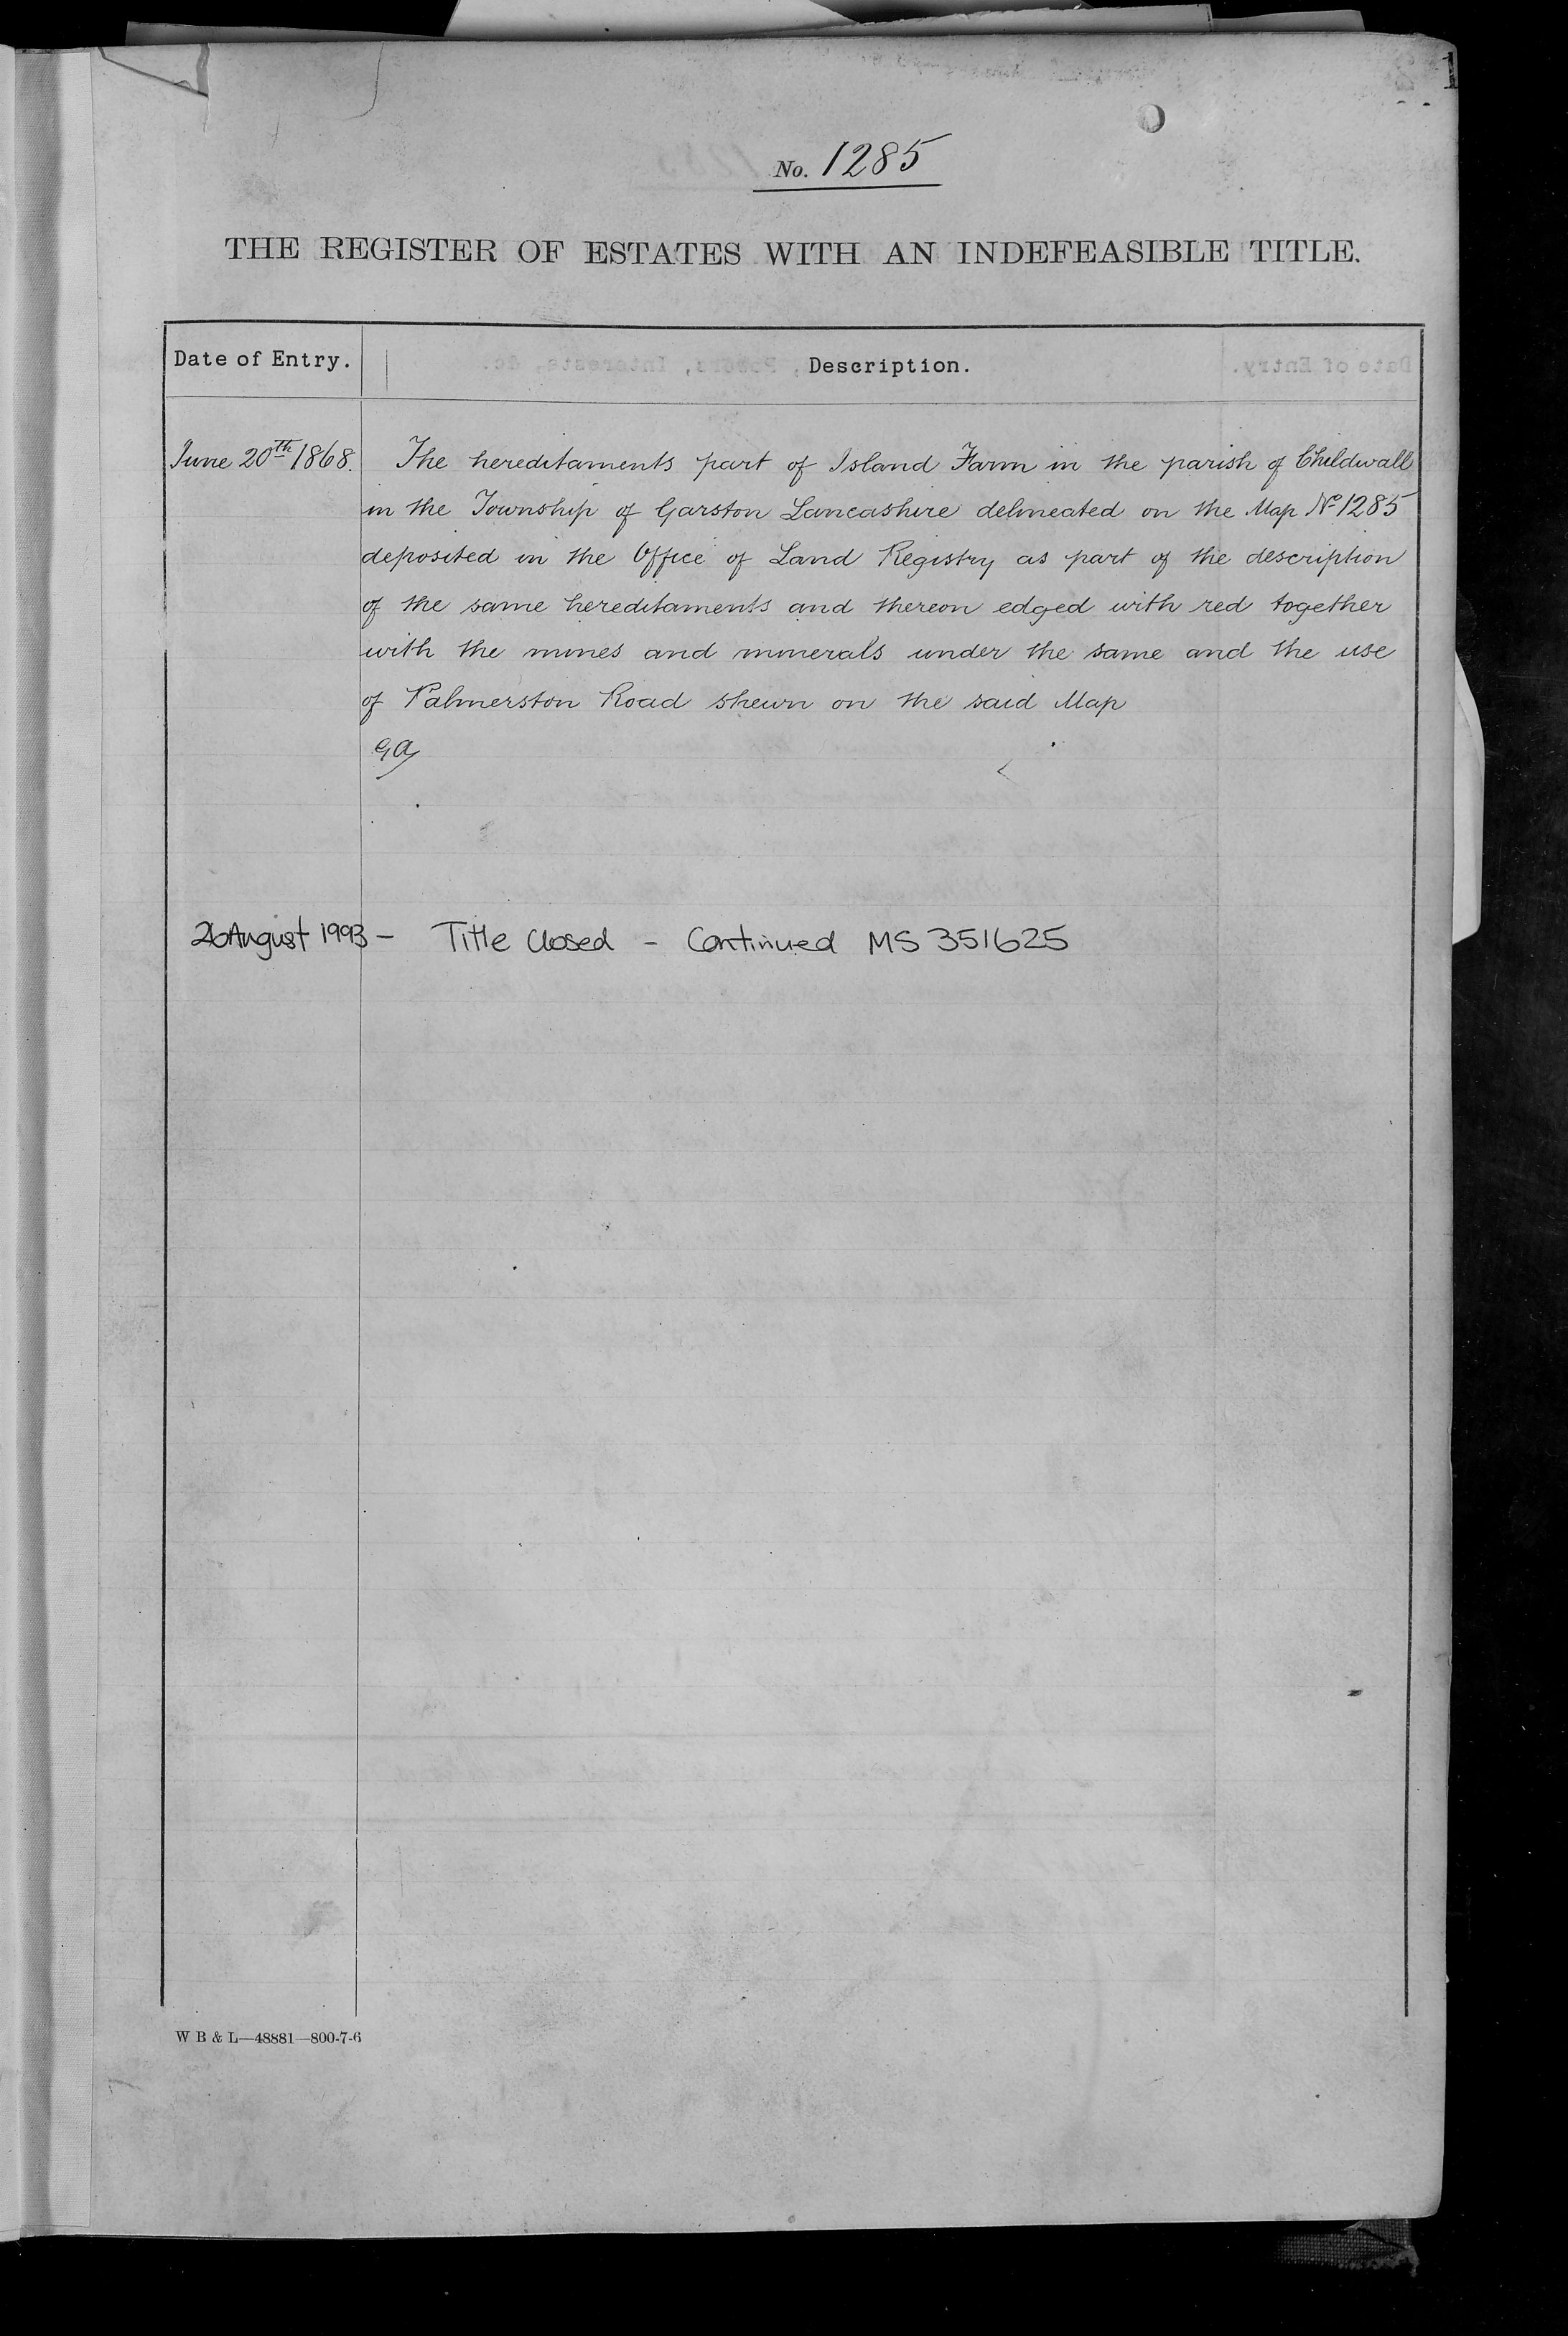 No. 1285
THE REGISTER OF ESTATES WITH AN INDEFEASIBLE TITLE.
Date of Entry. Description.
June 20th 1868. The hereditaments part of Island Farm in the parish of Childwall
in the Township of Garston Lancashire delineated on the Map No 1285
deposited in the Office of Land Registry as part of the description
of the same hereditaments and thereon edged with red together
with the mines and minerals under the same and the use
of Palmerston Road shewn on the said Map
GA
26 August 1993 - Title Closed - Continued MS 351625
W B & L—48881—800-7-6